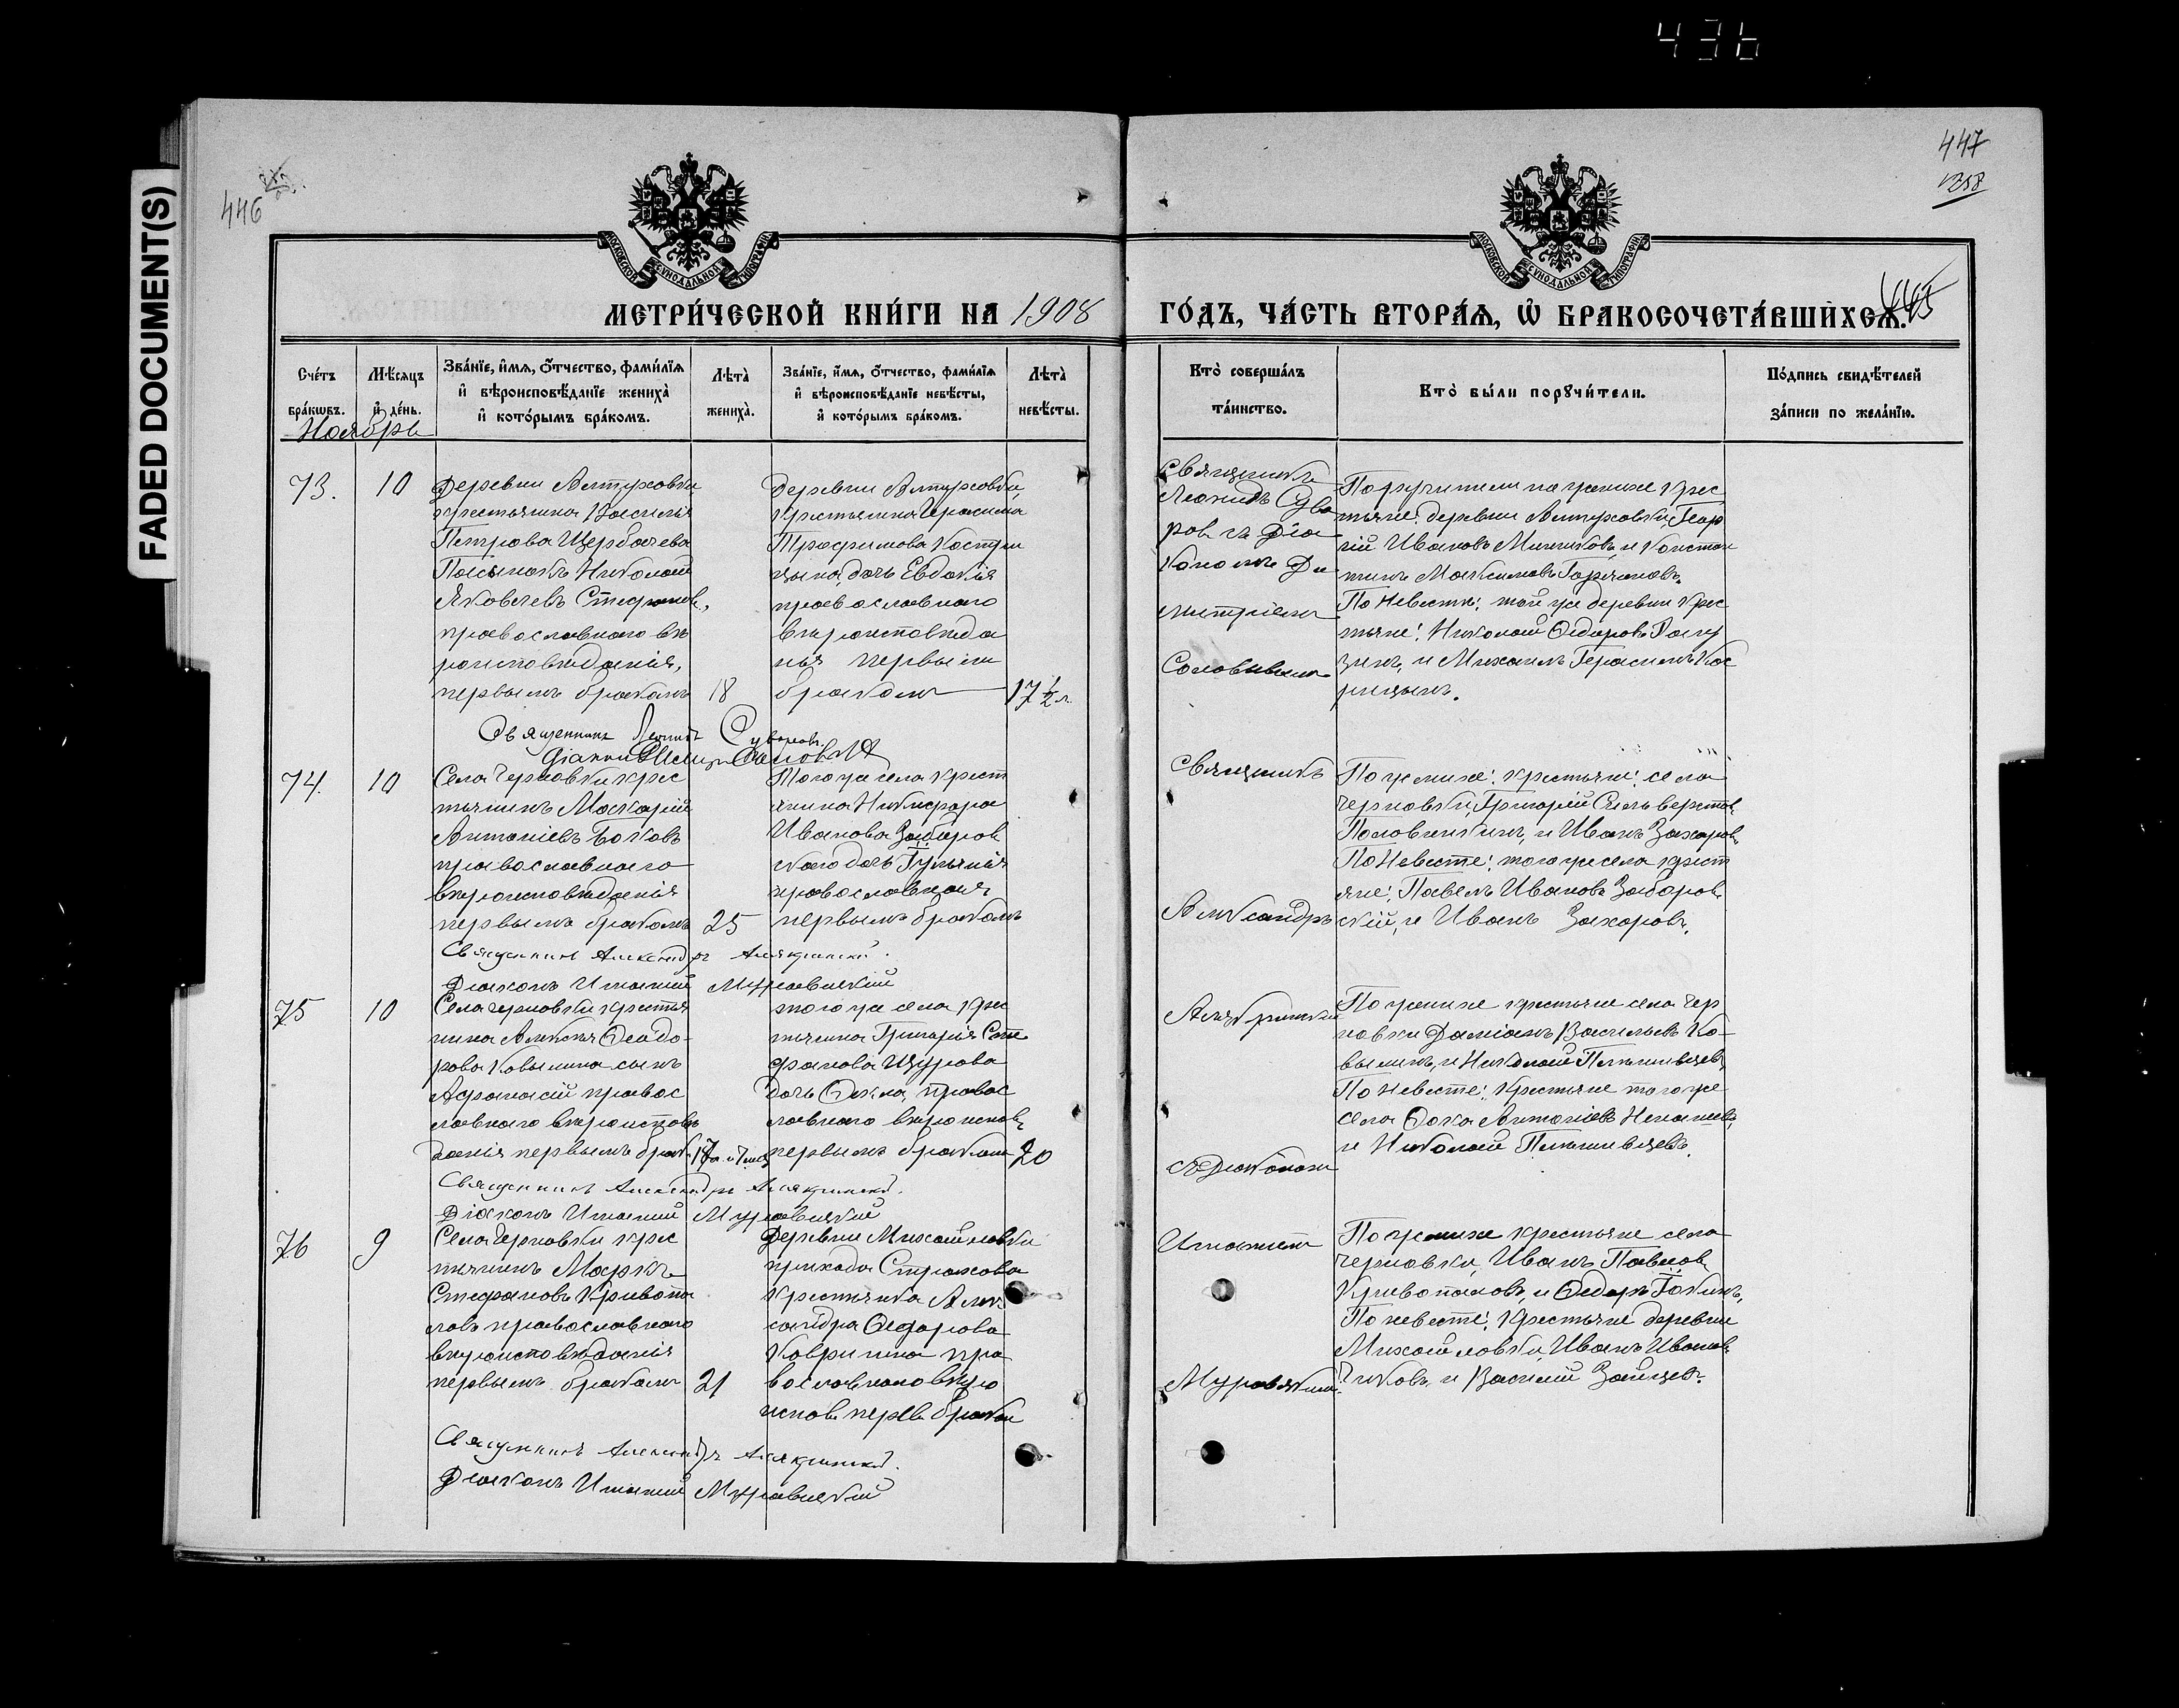 436
FADED DOCUMENT(S)
446
447
МОСКОВСКОЙ СѴНОДАЛЬНОЙ ТИПОГРАФІИ
МОСКОВСКОЙ СѴНОДАЛЬНОЙ ТИПОГРАФІИ
МЕТРИ́ЧЕСКОЙ КНИ́ГИ НА 1908
ГО́ДЪ, ЧА́СТЬ ВТОРА́Ѧ, Ѽ БРАКОСОЧЕТА́ВШИХСѦ.
445
Сче́тъ бра́кѡвъ.
Мѣ́сяцъ и҆ де́нь.
Зва́нїе, и҆́мѧ, о҆́тчество, фами́лїѧ и҆ вѣроисповѣ́данїе жениха̀ и҆ кото́рымъ бра́комъ.
Лѣ́та̀ жениха̀.
Зва́нїе, и҆́мѧ, о҆́тчество, фами́лїѧ и҆ вѣроисповѣ́данїе невѣ́сты, и҆ кото́рымъ бра́комъ.
Лѣ́та̀ невѣ́сты.
Кто̀ соверша́лъ та́инство.
Кто̀ бы́ли порꙋчи́тели.
По́дпись свидѣ́телей за́писи по жела́нїю.
Ноябрь
73.
10
Деревни Алтуховки
крестьянина Василія
Петрова Щербачева
Пасынокъ Николай
Яковлевъ Стефановъ,
православнаго вѣ
роисповѣданія,
первымъ бракомъ
18
деревни Алтуховки,
крестьянина Герасима
Трофимова
дочь Евдокія
православнаго
вѣроисповѣда
нія первымъ
бракомъ
17½ л.
Священникъ
Леонидъ Суво
ровъ съ Діа
кономъ Ди
митріемъ
Соловьевымъ
Поручители по женихѣ крес
тьяне: деревни Алтуховки, Геор
гій Ивановъ и Констан
тинъ Максимовъ
По невѣстѣ: той же деревни крес
тьяне: Николай Ѳедоровъ
и Михаилъ Герасимовъ
Священникъ Леонидъ Суворовъ.
74.
10
Села Черновки крес
тьянинъ Макарій
Антоніевъ Боковъ
православнаго
вѣроисповѣданія
первымъ бракомъ
25
Того же села крест
янина Никифора
Иванова Забаров
скаго дочь
православная
первымъ бракомъ
Священникъ
Александръ
По женихѣ: крестьяне: села
Черновки, Григорій Сильверстовъ
Половинкинъ, и Иванъ Захаровъ
По Невестѣ: того же села крест
яне: Павелъ Ивановъ Забаров
скій, и Иванъ Захаровъ.
Священникъ Александръ Алякринскій.
Діаконъ Игнатій Муравлянскій
75
10
Села Черновки крестья
нина Алексѣя Ѳеодо
рова Ковылина сынъ
Афанасій правос
лавнаго вѣроисповѣ
данія первымъ брак
того же села крес
тьянина Григорія Сте
фанова Щурова
дочь Ѳекла, правос
лавнаго вѣроисповѣ
первымъ бракомъ
20
Алякринскій
съ Діакономъ
По женихѣ крестьяне села Чер
новки Даміанъ Васильевъ Ко
вылинъ, и Николай
По невестѣ: Крестьяне того же
села Ѳока Антоніевъ
и Николай
Священникъ Александръ Алякринскій.
Діаконъ Игнатій Муравлянскій
76
9
Села Черновки крес
тьянинъ Маркъ
Стефановъ Кривопа
ловъ православнаго
вѣроисповѣданія
первымъ бракомъ
21
Деревни Михайловки
прихода Страхова
крестьянка Алек
сандра Ѳедорова
Коврина пра
вославнаго вѣро
испов. перв. бракомъ
Игнатіемъ
Муравлянскій
По женихѣ крестьяне села
Черновки, Иванъ Павловъ
Кривопаловъ, и Ѳедоръ
По невестѣ: Крестьяне деревни
Михайловки, Иванъ Ивановъ
и Василій Зайцевъ.
Священникъ Александръ Алякринскій.
Діаконъ Игнатій Муравлянскій